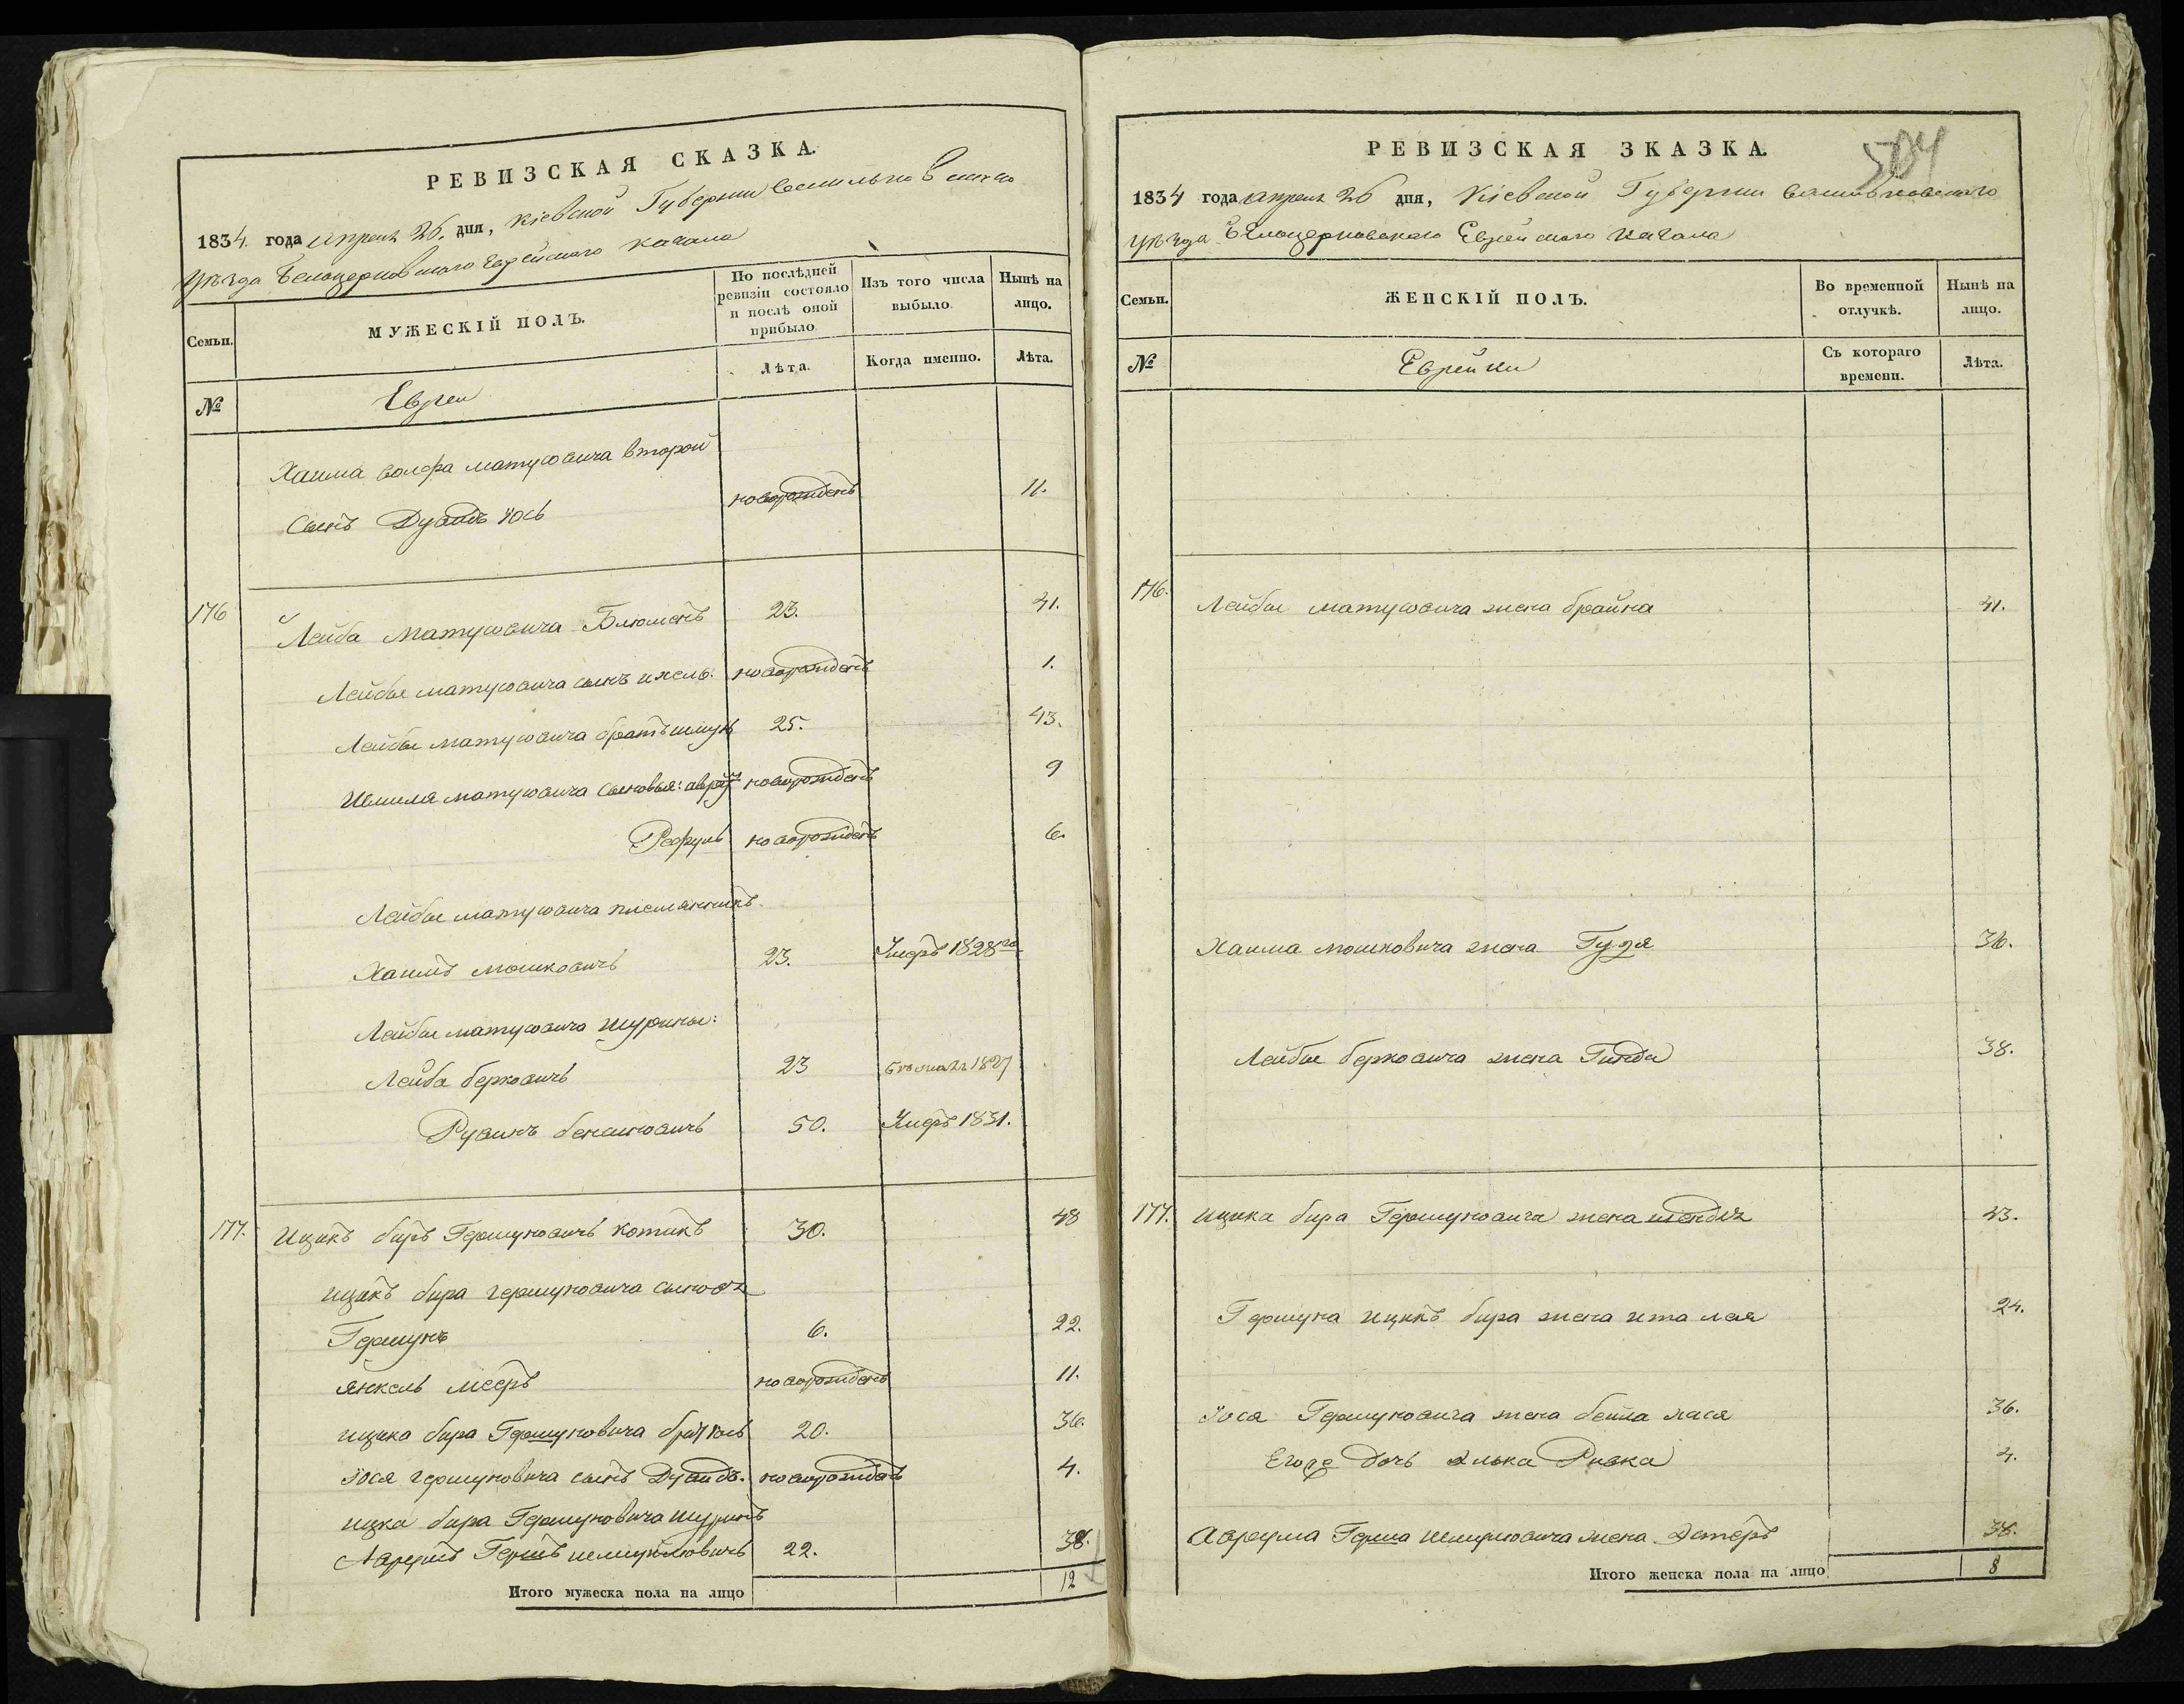 РЕВИЗСКАЯ СКАЗКА.
1834. года апреля 26. дня, Кіевской Губерніи Васильковскаго
уѣзда Белоцерковскаго Еврейскаго Кагала
Семьи.
МУЖЕСКІЙ ПОЛЪ.
По послѣдней ревизіи состояло и послѣ оной прибыло
Изъ того числа выбыло.
Нынѣ на лицо.
№
Евреи
Лѣта.
Когда именно.
Лѣта.
Хаима волфа матусовича второй
сынъ Дувидъ Іось новорожденъ 11.
176 Лейба Матусовича Блюменъ 23. 41.
Лейбы матусовича сынъ ихель. новорожденъ 1.
Лейбы матусовича братъ шмуль 25. 43.
Шмиля матусовича сыновья: новорожденъ 9
Рефуль новорожденъ 6.
Лейбы матусовича племянникъ
Хаимъ мошковичъ 23. Умеръ 1828го
Лейбы матусовича шурины:
Лейба берковичъ 23 1827
Рувинъ 50. Умеръ 1831.
177. Ицикъ биръ Гершуновичъ Котикъ 30. 48
ицикъ бира гершуновича сыновя
Гершунъ 6. 22.
янкель мееръ новорожденъ 11.
ицика бира Гершуновича братъ Іось 20. 36.
Іося гершуновича сынъ Дувидъ. новорожденъ 4.
ицка бира Гершуновича шуринъ
Аврумъ Гершъ шмуйловичъ 22. 38.
Итого мужеска пола на лицо 12
РЕВИЗСКАЯ ЗКАЗКА.
504
1834 года апреля 26 дня, Кіевской Губерніи Васильковскаго
уѣзда Бѣлоцерковскаго Еврейскаго Кагала
Семьи.
ЖЕНСКІЙ ПОЛЪ.
Во временной отлучкѣ.
Нынѣ на лицо.
№
Еврейки
Съ котораго времени.
Лѣта.
176. Лейбы матусовича жена брайна 41.
Хаима мошковича жена Гудя 36.
Лейбы берковича жена Гинда 38.
177. Ицика бира Гершуновича жена шендля 43.
Гершуна ицикъ бира жена ита лея 24.
Іося Гершуновича жена бейла хася 36.
Егоже дочь элька Ривка 4.
Аврума Герша шмулювича жена Эстеръ 38.
Итого женска пола на лицо 8